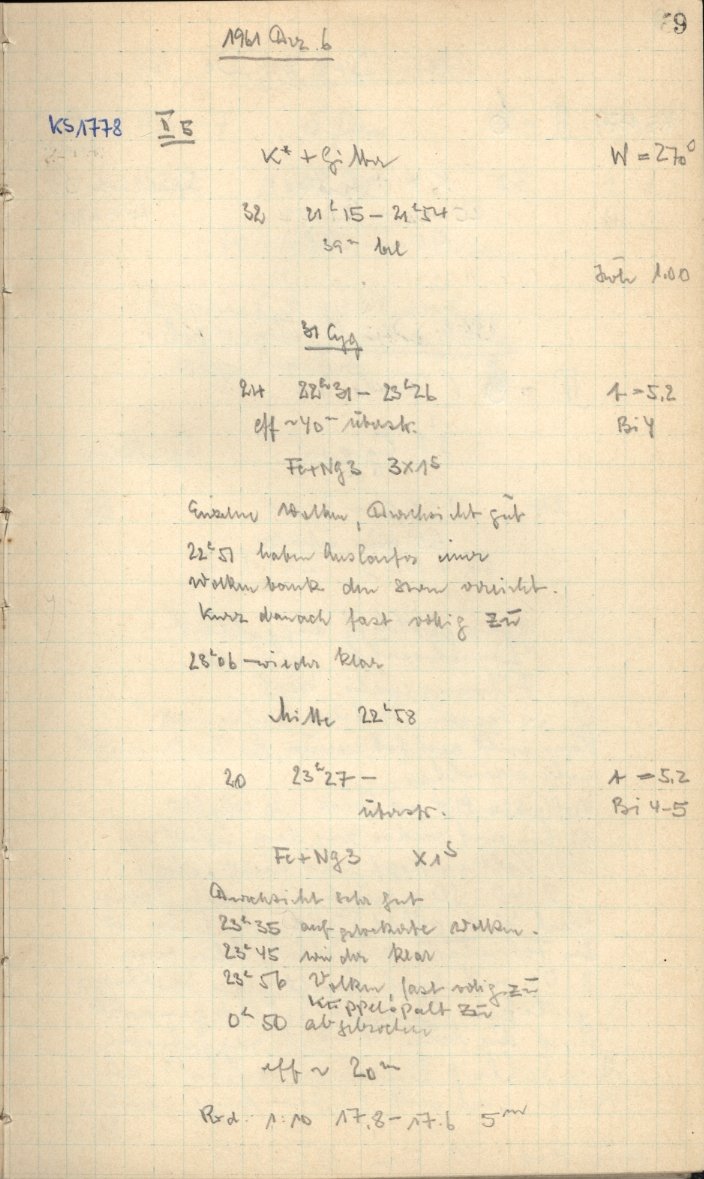 59
1961 Dez. 6
KS1778 V 5
K* + Gitter W = 270°
32 21ʰ15 – 21ʰ54
39ᵐ bel
1.00
31 Cyg
24 22ʰ31 – 23ʰ26 t = 5.2
eff ~ 40ᵐ überstr. Bi 4
Fe+Ng3 3×1ˢ
Einzelne Wolken, Durchsicht gut
22ʰ51 haben Ausläufer einer
Wolkenbank den Stern erreicht.
Kurz danach fast völlig zu
23ʰ06 – wieder klar
Mitte 22ʰ58
20 23ʰ27 – t = 5.2
überstr. Bi 4-5
Fe+Ng3 ×1ˢ
Durchsicht sehr gut
23ʰ35 aufgelockerte Wolken.
23ʰ45 wieder klar
23ʰ56 Wolken, fast völlig zu
Kuppelspalt zu
0ʰ50 abgebrochen
eff ~ 20ᵐ
1:10 17.8 – 17.6 5ᵐ